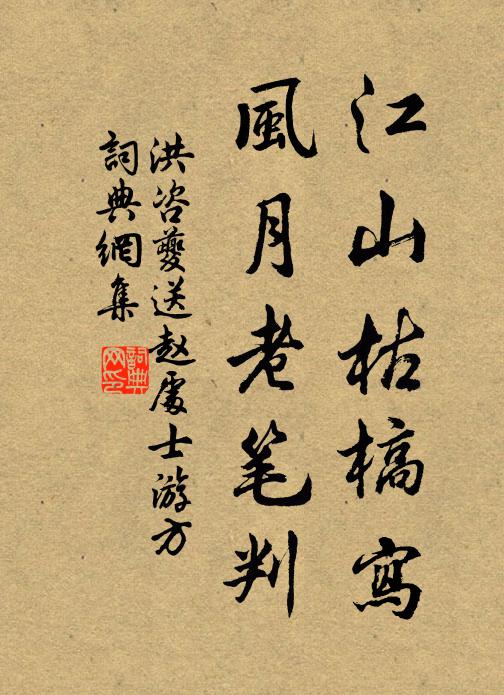 江山枯槁寫
風月老笔判
洪咨夔送赵處士游方
詞典網集
詞典网印